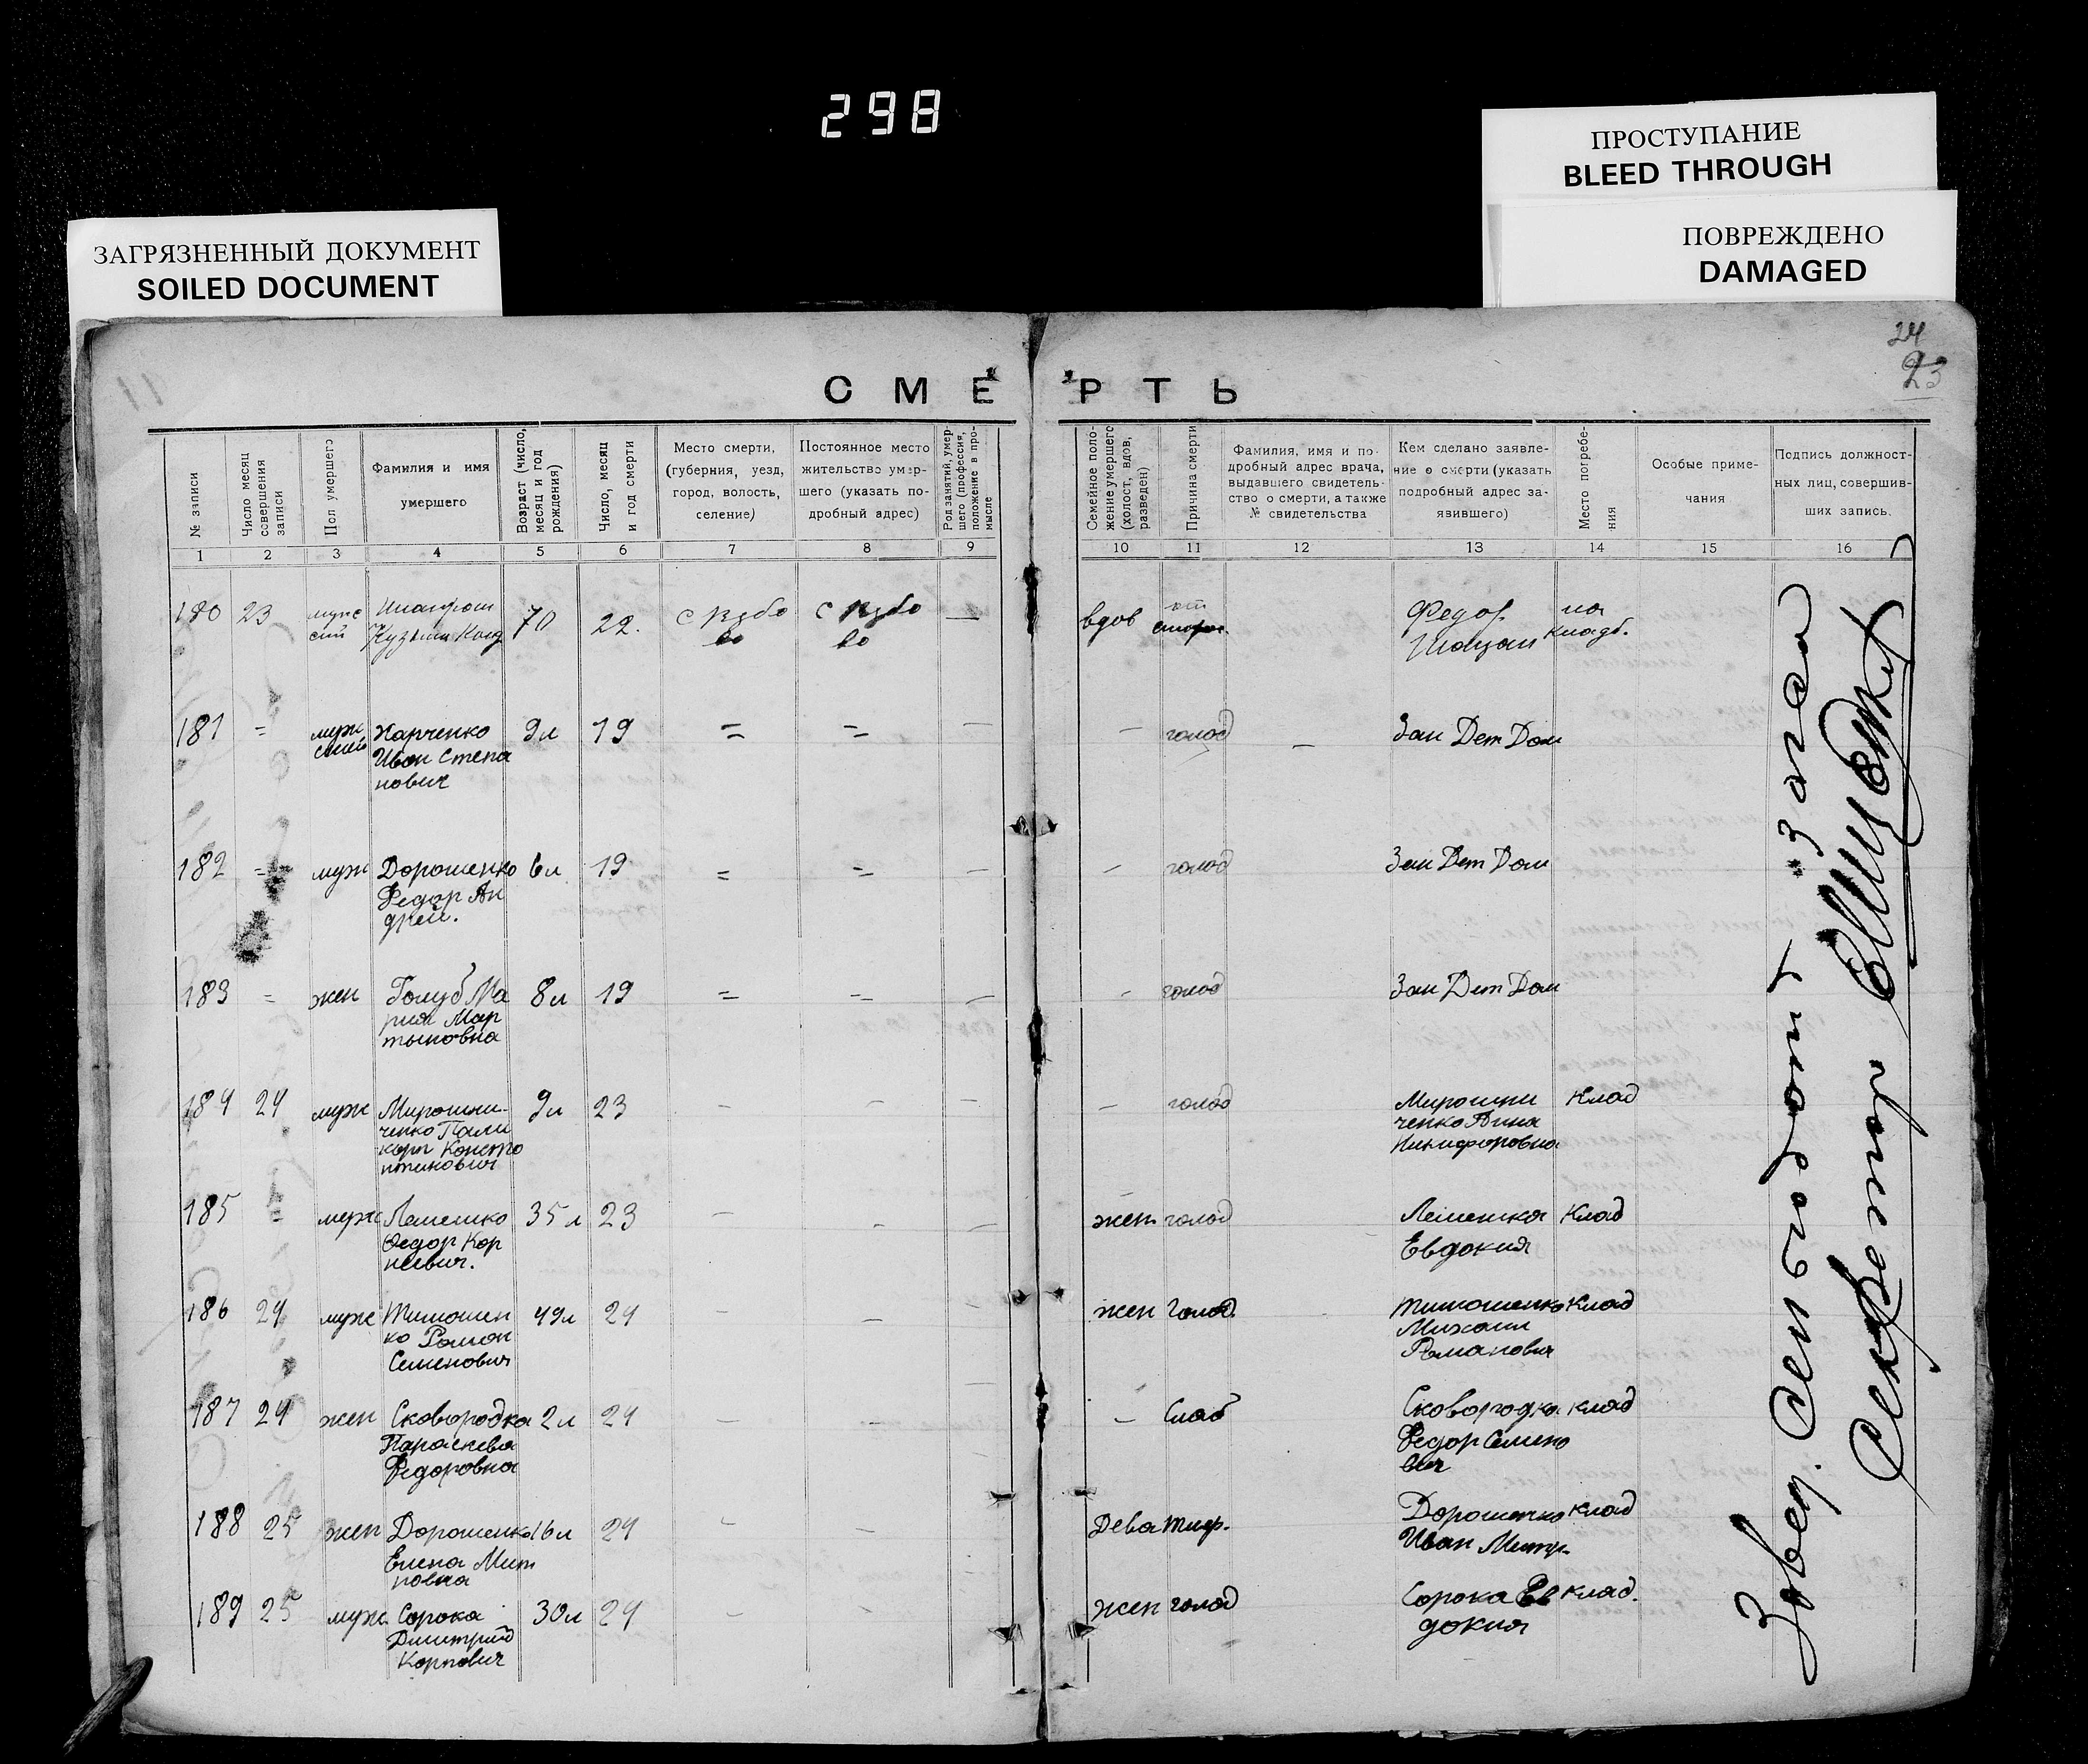 298
ПРОСТУПАНИЕ
BLEED THROUGH
ПОВРЕЖДЕНО
DAMAGED
ЗАГРЯЗНЕННЫЙ ДОКУМЕНТ
SOILED DOCUMENT
24
23
11
СМЕРТЬ
№ записи
Число месяц совершения записи
Пол умершего
Фамилия и имя умершего
Возраст (число, месяц и год рождения)
Число, месяц и год смерти
Место смерти, (губерния, уезд, город, волость, селение)
Постоянное место жительство умершего (указать подробный адрес)
Род занятий, умершего (профессия, положение в промысле
Семейное положение умершего (холост, вдов, разведен)
Причина смерти
Фамилия, имя и подробный адрес врача, выдавшего свидетельство о смерти, а также № свидетельства
Кем сделано заявление о смерти (указать подробный адрес заявившего)
Место погребения
Особые примечания
Подпись должностных лиц, совершивших запись.
1 2 3 4 5 6 7 8 9 10 11 12 13 14 15 16
180 23 70 22. вдов от Федор на
кладб.
181 = муж Харченко 9л 19 = = — — голод — Зав Дет Дом
Иван Степа
нович
182 = муж Дорошенко 6л 19 = = — — голод Зав Дет Дом
Федор Ан
дрей.
183 = жен Голуб Ма 8л 19 = = — — голод Зав Дет Дом
рия Мар
тыновна
184 24 муж Мирошни- 9л 23 — — — — голод Мирошни Клад
ченко Поли ченко Анна
карп Конста Никифоровна
нтинович
185 = муж 35л 23 — — — жен голод Клад
Федор Кор Евдокия
неевич.
186 24 муж Тимошен 49л 24 — — — жен Голод. Тимошенко Клад
ко Роман Михаил
Семенович Романович
187 24 жен Сковородка 2л 24 — — — Слаб Сковородка клад
Параскева Федор Семено
Федоровна вич
188 25 жен Дорошенко 16л 24 — — Дева Тиф. Дорошенко клад
Елена Мит Иван Митр.
ровна
189 25 муж Сорока 30л 24 — — жен голод Сорока Ев клад.
Дмитрий докия
Карпович
Секретар